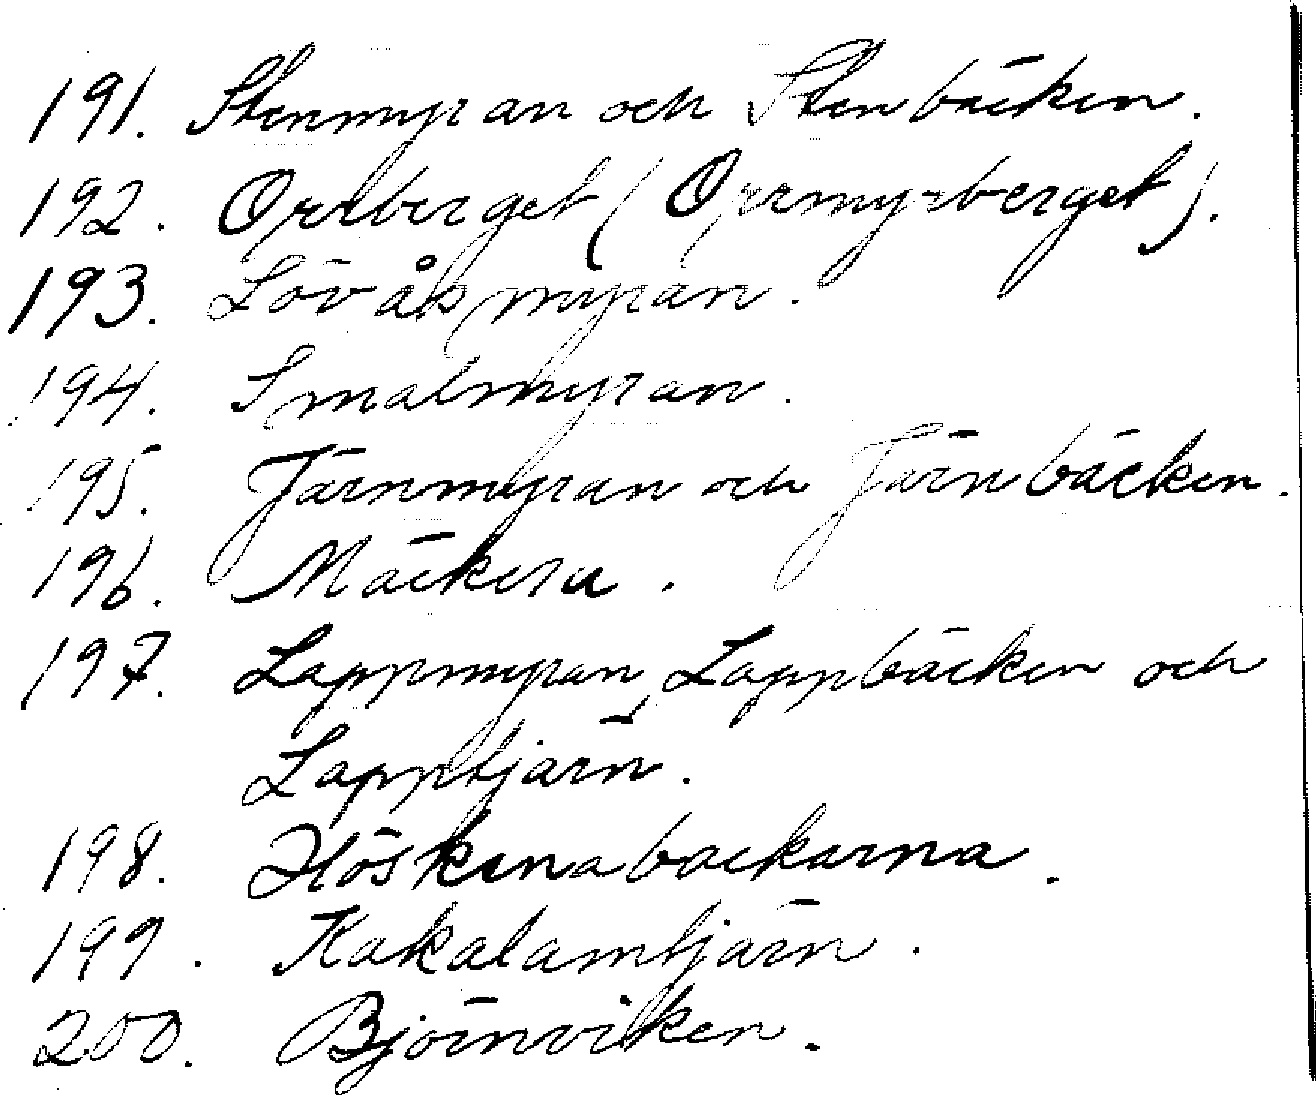 191. Stenmyran och Stenbäcken.
192. Orrberget (Orrmyrberget).
193. Lövåsmyran.
194. Smalmyran.
195. Järnmyran och Järnbäcken.
196. Mäckeru.
197. Lappmyran, Lappbäcken och
Lapptjärn.
198. Höskenabackarna.
199. Kakalamtjärn.
200. Björnviken.